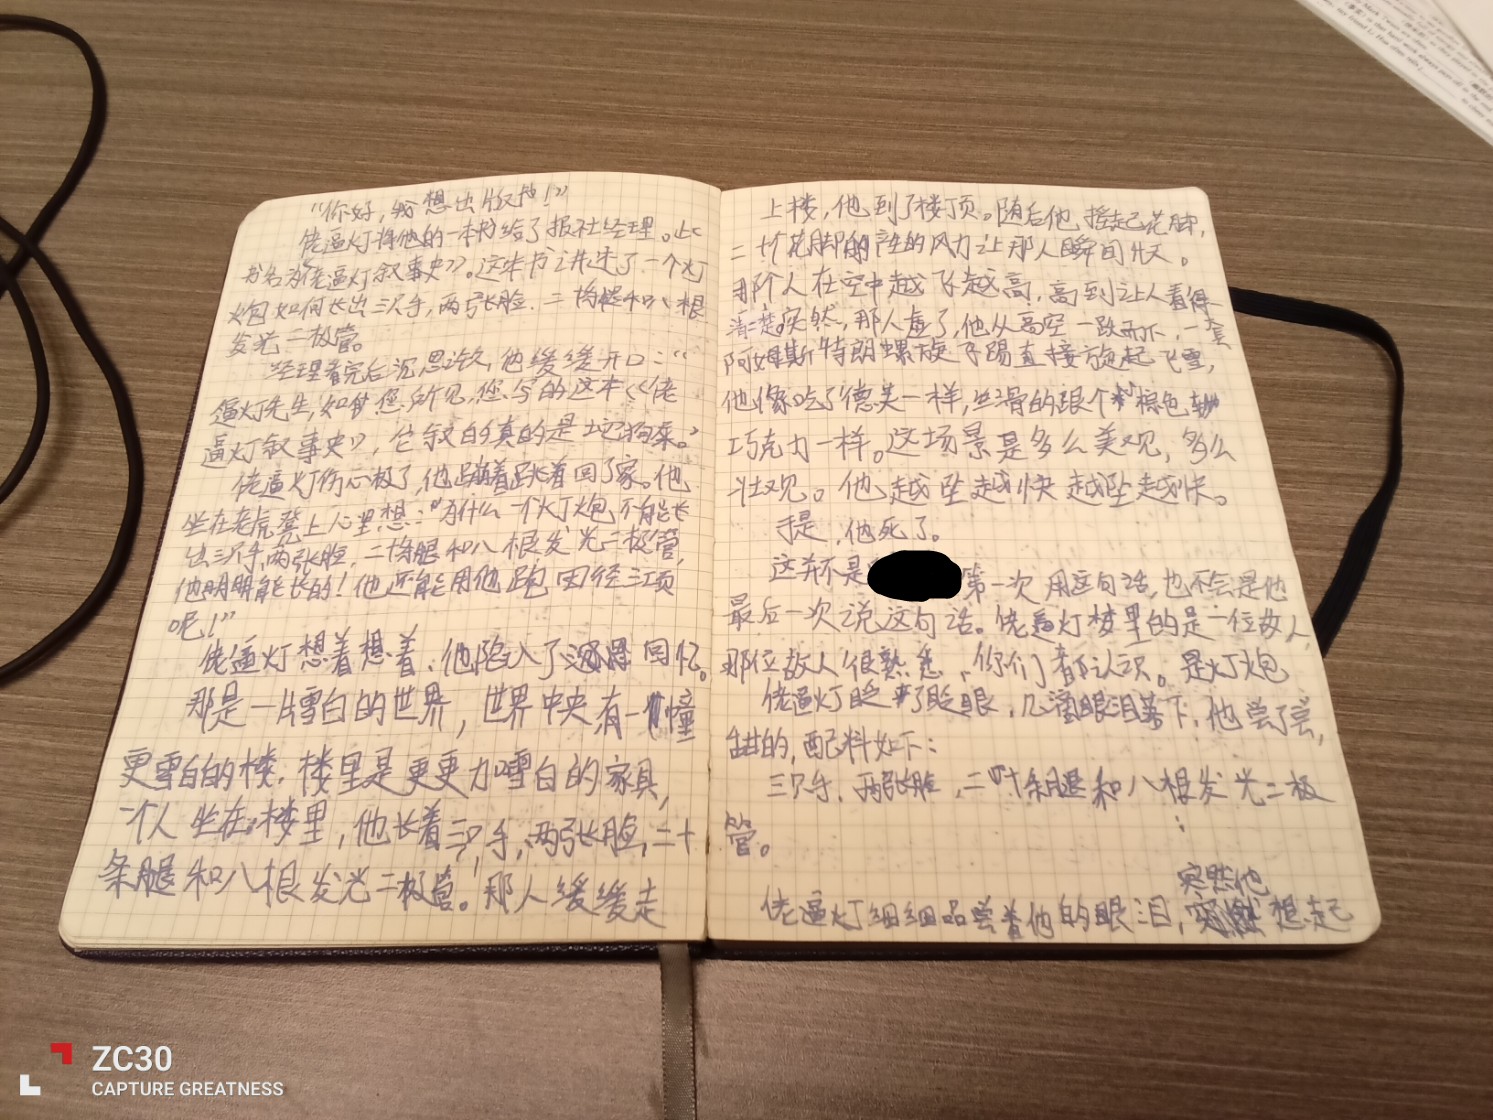 “你好，我想出版书！”
佬逼灯将他的一本书给了报社经理。此
书名为《佬逼灯叙事史》。这本书讲述了一个灯
炮如何长出三只手，两张脸，二十条腿和八根
发光二极管。
经理看完后沉思许久，他缓缓开口：“佬
逼灯先生，如您所见，您写的这本《佬
逼灯叙事史》，它叙的真的是
佬逼灯伤心极了，他蹦着跳着回了家。他
坐在老虎凳上心里想：“为什么一个灯炮不能长
出三只手，两张脸，二十条腿和八根发光二极管，
他明明能长的！他还能用他跑田径三项
呢！”
佬逼灯想着想着，他陷入了回忆。
那是一片雪白的世界，世界中央有一幢
更雪白的楼，楼里是更更加雪白的家具，
一个人坐在楼里，他长着三只手，两张脸，二十
条腿和八根发光二极管。那人缓缓走
上楼，他到了楼顶。随后他抬起花脚，
二十花脚的产生的风力让那人瞬间升天。
那个人在空中越飞越高，高到让人看得
清楚。突然，那人虚了，他从高空一跌而下，一套
阿姆斯特朗螺旋飞踢直接旋起飞雪，
他像吃了德芙一样，丝滑的跟个棕色
巧克力一样。这场景是多么美观，多么
壮观。他越坠越快越坠越快。
于是，他死了。
这并不是 第一次用这句话，也不会是他
最后一次说这句话。佬逼灯梦里的是一位故人，
那位故人很熟悉，你们都认识。是灯炮
佬逼灯眨了眨眼，几滴眼泪落下，他尝了尝，
甜的，配料如下：
三只手，两张脸，二十条腿和八根发光二极
管。
突然他
佬逼灯细细品尝着他的眼泪， 想起
ZC30
CAPTURE GREATNESS